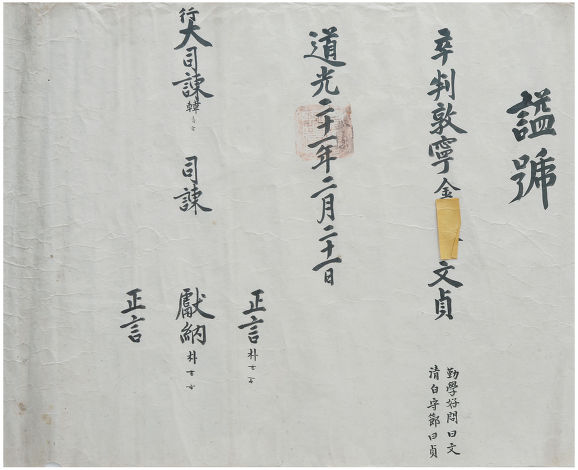 諡號
卒判敦寧金
文貞
勤學好問曰文
清白守節曰貞
道光二十一年二月二十一日
正言朴
行大司諫韓
司諫
獻納朴
正言